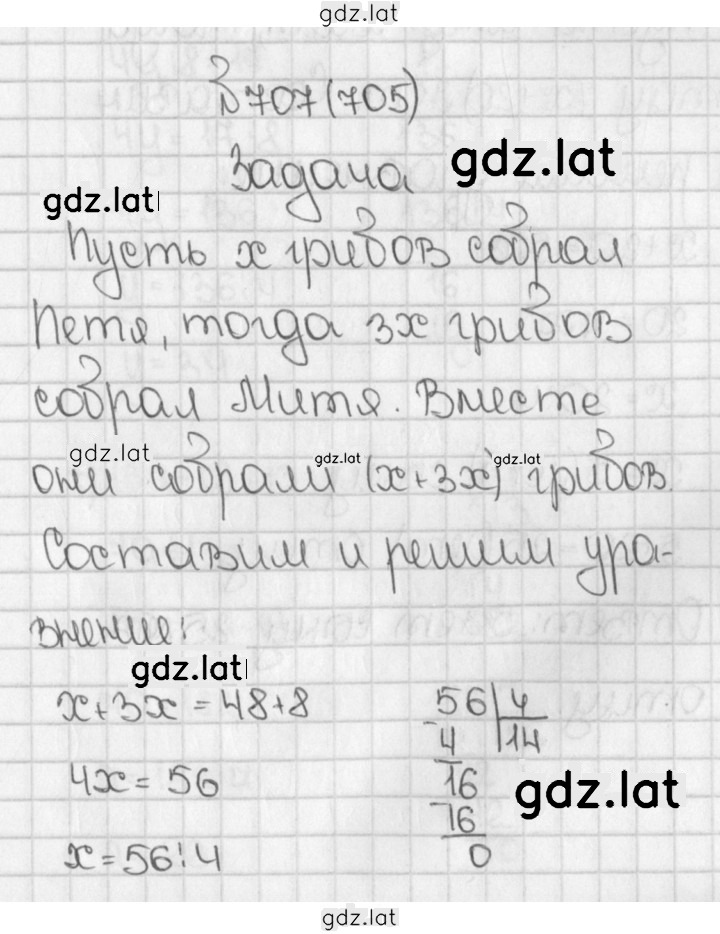 gdz.lat
№707(705)
Задача
gdz.lat
gdz.lat
Пусть x грибов собрал
Петя, тогда 3x грибов
собрал Митя. Вместе
gdz.lat
gdz.lat
gdz.lat
они собрали (x+3x) грибов.
Составим и решим ура-
внение:
gdz.lat
x+3x=48+8
4x=56
x=56:4
56 4
-4 14
16
-16
0
gdz.lat
gdz.lat